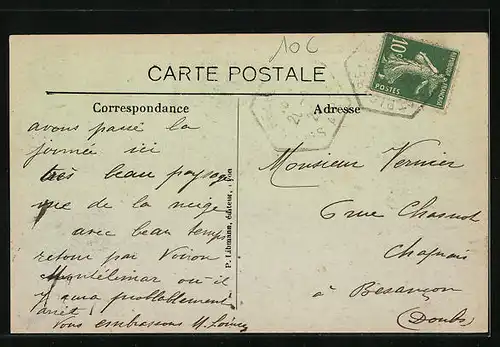 10 c
10c
POSTES
CARTE POSTALE
Correspondance
Adresse
avons passé la
journée ici
très beau paysage
vue de la neige
avec beau temps
retour par Voiron
Montélimar où il
y aura probablement
arrêt
Vous embrassons M.
P. Libmann, éditeur,
Monsieur Vernier
6 rue
à Besançon
(Doubs)